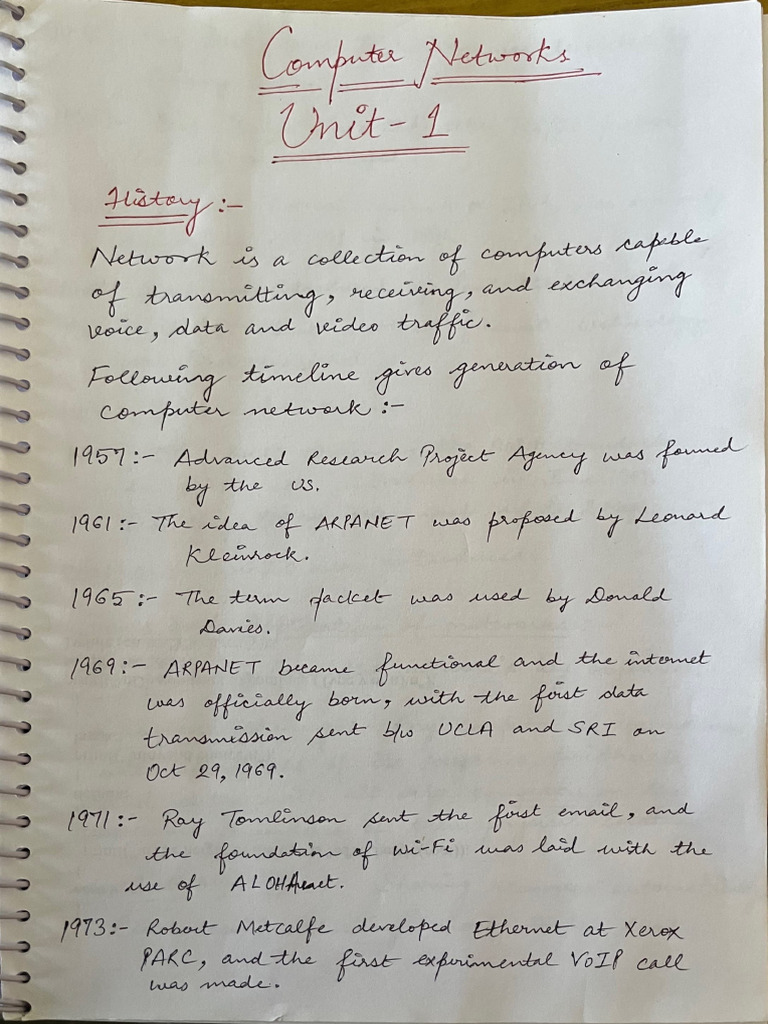 Computer Networks
Unit-1
History :-
Network is a collection of computers capable
of transmitting, receiving, and exchanging
voice, data and video traffic.
Following timeline gives generation of
computer network :-
1957:- Advanced Research Project Agency was formed
by the US.
1961:- The idea of ARPANET was proposed by Leonard
Kleinrock.
1965:- The term packet was used by Donald
Davies.
1969:- ARPANET became functional and the internet
was officially born, with the first data
transmission sent b/w UCLA and SRI on
Oct 29, 1969.
1971:- Ray Tomlinson sent the first email, and
the foundation of Wi-Fi was laid with the
use of ALOHAnet.
1973:- Robert Metcalfe developed Ethernet at Xerox
PARC, and the first experimental VoIP call
was made.